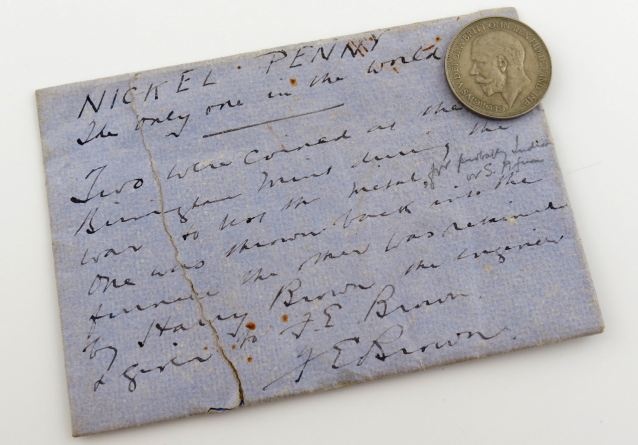 NICKEL. PENNY
The only one in the world
Two were coined at the
Birmingham Mint during the
war to test the metal,
for probably India
or S. Africa
One was thrown back into the
furnace the other was retained
by Harry Brown the engineer
& given to F E Brown.
F E Brown.